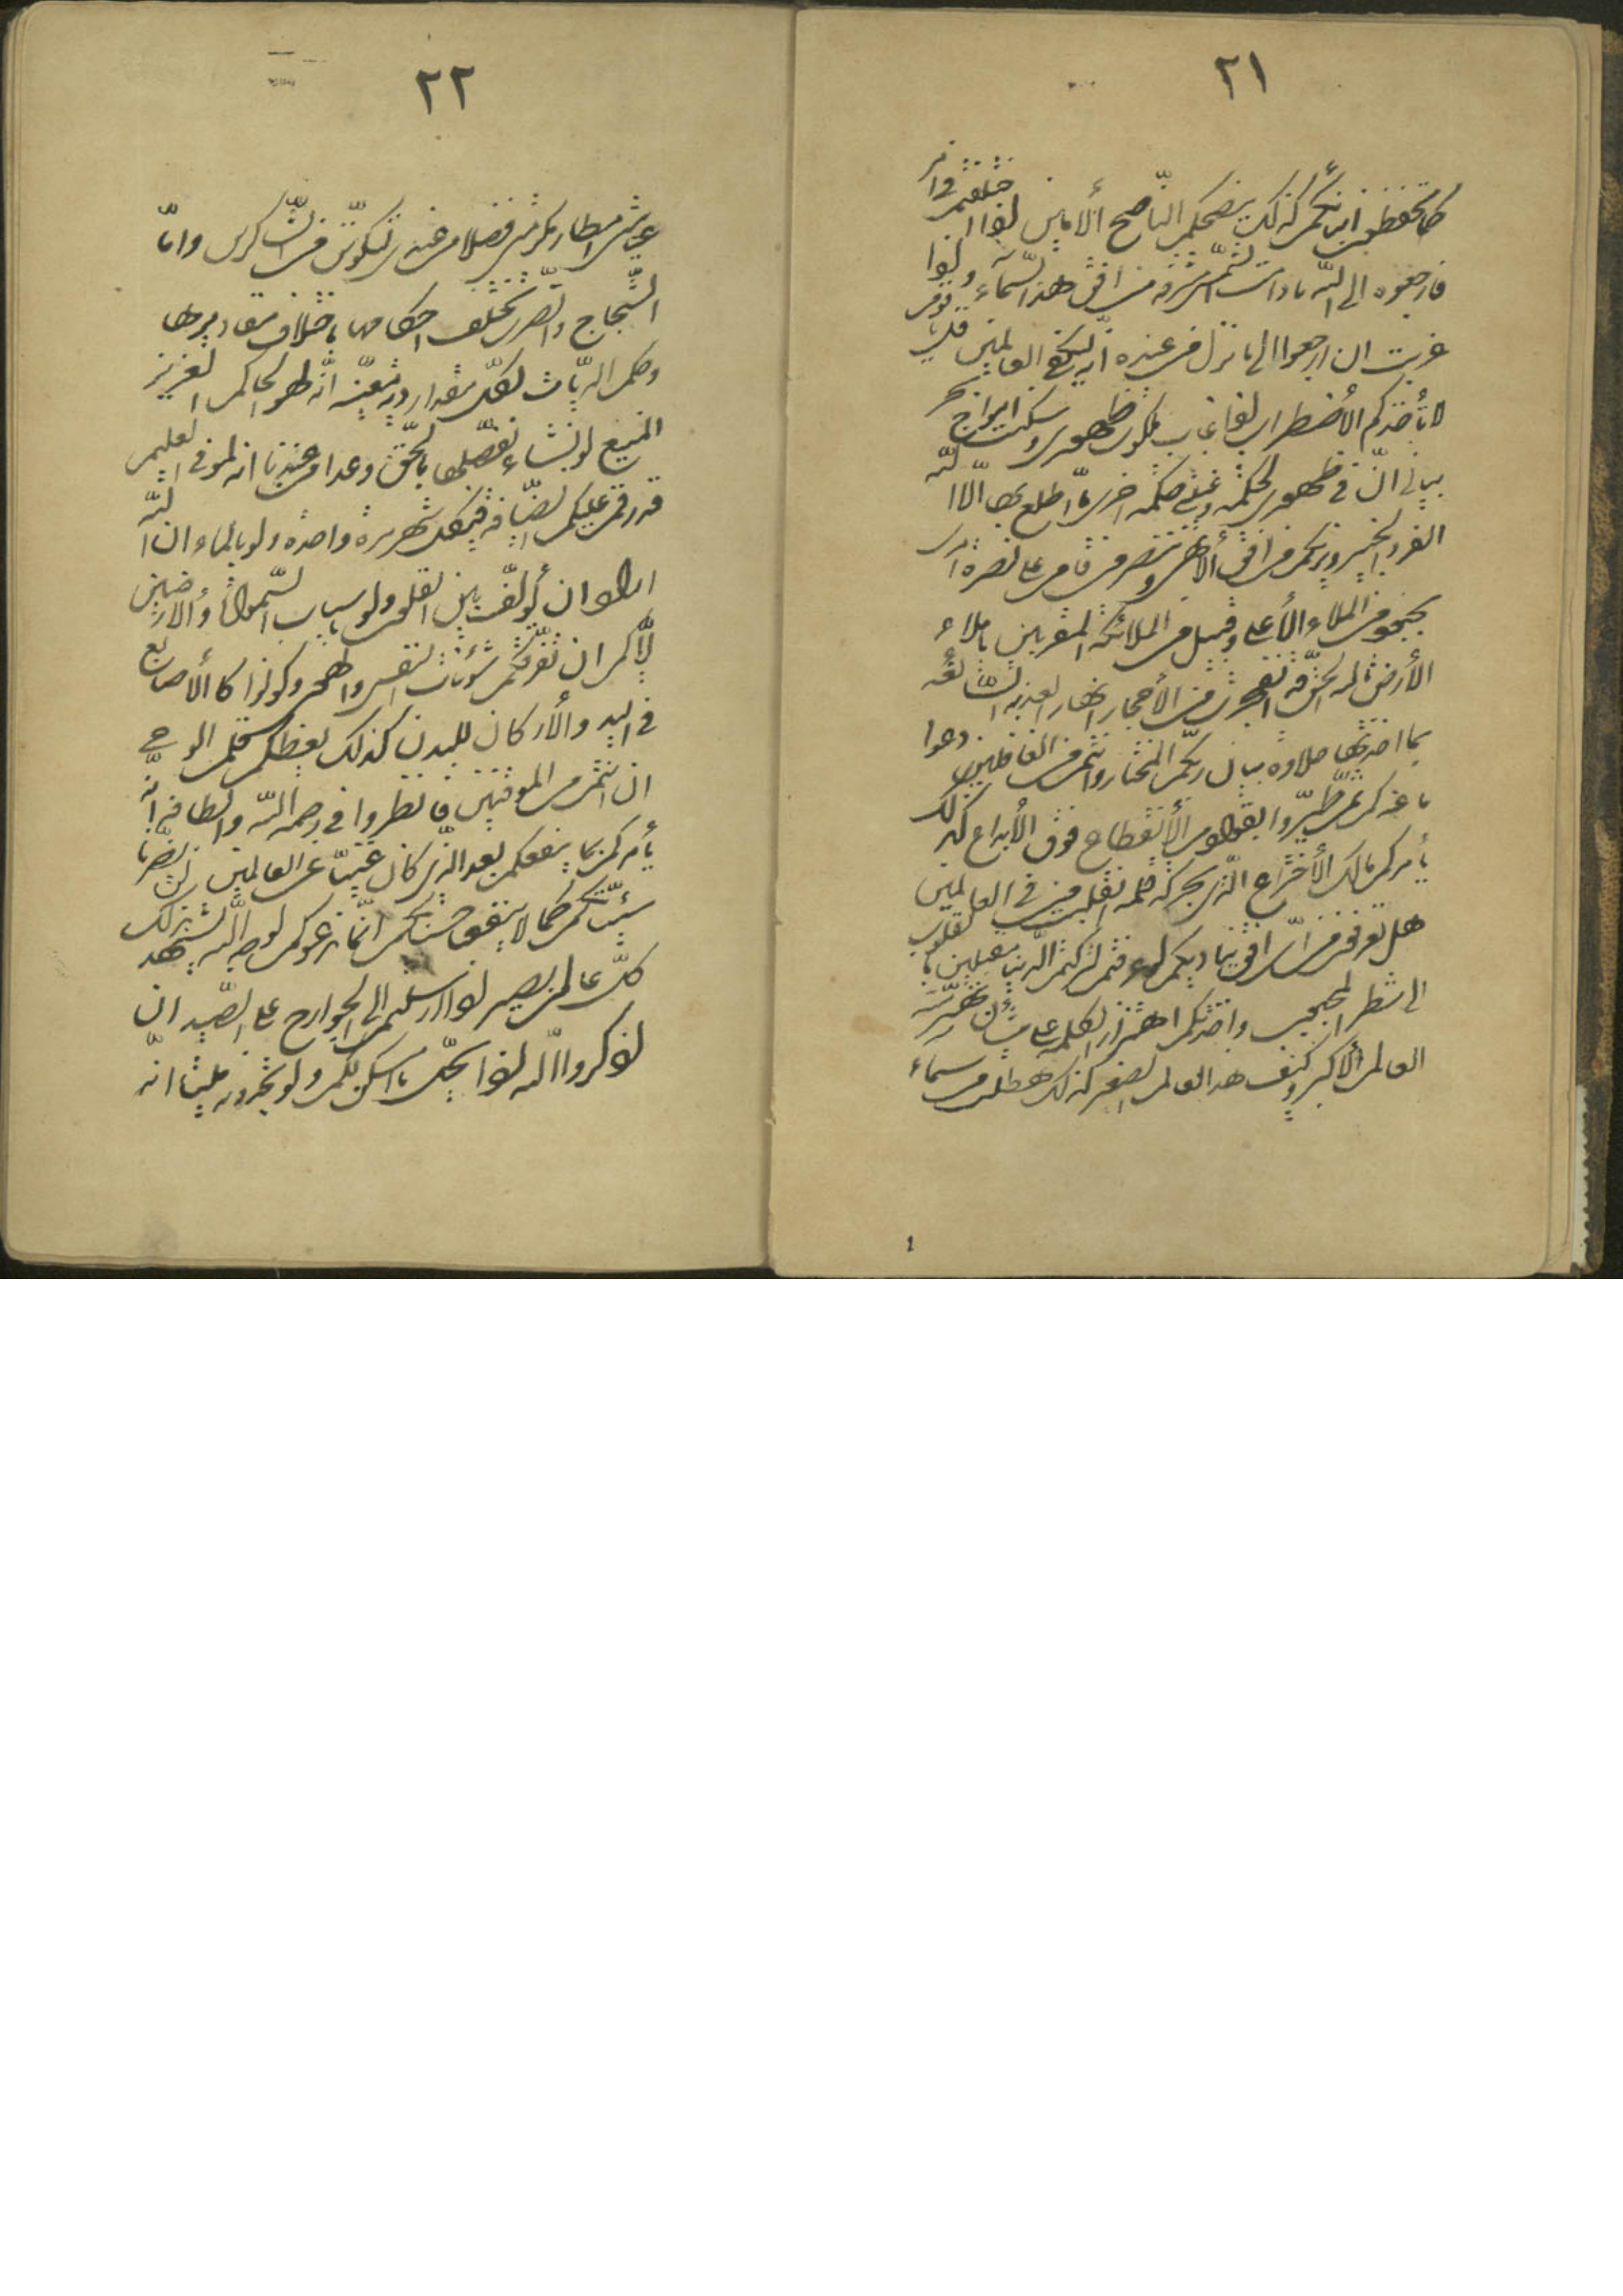 ٢١
كما تحفظون اعينكم كذلك ينصحكم النّاصح الأمين اذا اختلفتم فى امر
فارجعوه الى اللّه ما دامت الشّمس مشرقة من افق هذه السّمآء و اذا
غربت ان ارجعوا الى ما نزل من عنده انّه ليكفى العالمين قل يا قوم
لا يأخذكم الأضطراب اذا غاب ملكوت ظهورى و سكنت امواج بحر
بيانى انّ فى ظهورى لحكمة و غيبتى حكمة اخرى ما اطّلع بها الّا اللّه
الفرد الخبير و نريكم من افقى الأبهى و ننصر من قام على نصرة امرى
بجنود من الملاء الأعلى و قبيل من الملائكة المقرّبين يا ملاء
الأرض تاللّه الحقّ قد انفجرت من الأحجار انهار العذبة السّائغة
بما اخذتها حلاوة بيان ربّكم المختار و انتم من الغافلين دعوا
ما عندكم ثمّ طيّروا بقوادم الأنقطاع فوق الأبداع كذلك
يأمركم مالك الأختراع الّذى بحركة قلمه انقلبت فى العالمين
هل تعرفون من اىّ افق يناديكم لو عرفتم لتركتم الدّنيا مقبلين بالقلوب
الى شطر المحبوب و اخذتكم اهتزاز الكلمة على شأن تهتزّ منه
العالم الأكبر و كيف هذا العالم الصغير كذلك هطلت من سماء
٢٢
عنايتى امطار مكرمتى فضلا من عندى لتكوننّ من الشّاكرين و امّا
الشّجاج و الضّرب تختلف احكامها باختلاف مقاديرها
و حكم الديّان لكلّ مقدار دية معيّنة انّه لهو الحاكم العزيز
المنيع لو نشاء نفصّلها بالحقّ وعدا من عندنا انه لموفى العليم
قد رقم عليكم الضّيافة فى كل شهر مرة واحدة و لو بالماء ان اللّه
اراد ان يؤلّف بين القلوب و لو باسباب السّموات و الأرضين
ايّاكم ان تفرّقكم شئونات النفس و الهوى و كونوا كالأصابع
فى اليد و الأركان للبدن كذلك يعظكم قلم الوحى
ان انتم من الموقنين فانظروا فى رحمة اللّه و الطافه انّه
يأمركم بما ينفعكم بعد الّذى كان غنيّا عن العالمين لن يضرّنا
سيّئاتكم كما لا ينفعنا حسناتكم انّما ندعوكم لوجه اللّه يشهد بذلك
كلّ عالم بصير اذا ارسلتم الى الجوارح على الصّيد ان
اذكروا اللّه اذا يحلّ ما امسكن لكم و لو تجدونه ميتا انّه